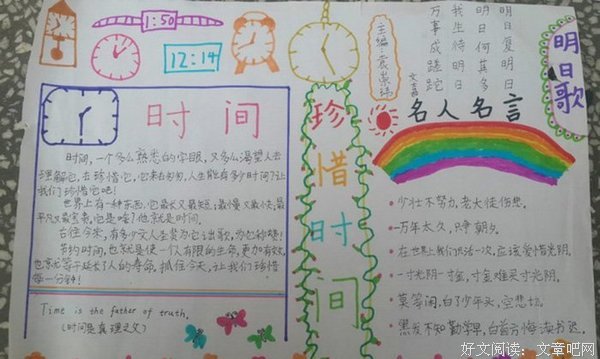 1:50
12:14
主编:袁崇玮
文嘉
明日复明日
明日何其多
我生待明日
万事成蹉跎
明日歌
时间
时间,一个多么熟悉的字眼,又多么渴望人去
理解它,去珍惜它,它来去匆匆,人生能有多少时间?让
我们珍惜它吧!
世界上有一种东西,它最长又最短;最慢又最快;最
平凡又最宝贵,它是啥?他就是时间.
古往今来,有多少文人圣贤为它出歌,为它称赞!
节约时间,也就是使一个人有限的生命,更加有效,
也就等于延长了人的寿命,抓住今天,让我们珍惜
每一分钟!
Time is the father of truth.
(时间是真理之父)
珍惜时间
名人名言
少壮不努力,老大徒伤悲.
一万年太久,只争朝夕.
在世界上我们只活一次,应该爱惜光阴.
一寸光阴一寸金,寸金难买寸光阴.
莫等闲,白了少年头,空悲切.
黑发不知勤学早,白首方悔读书迟.
好文阅读:文章吧网